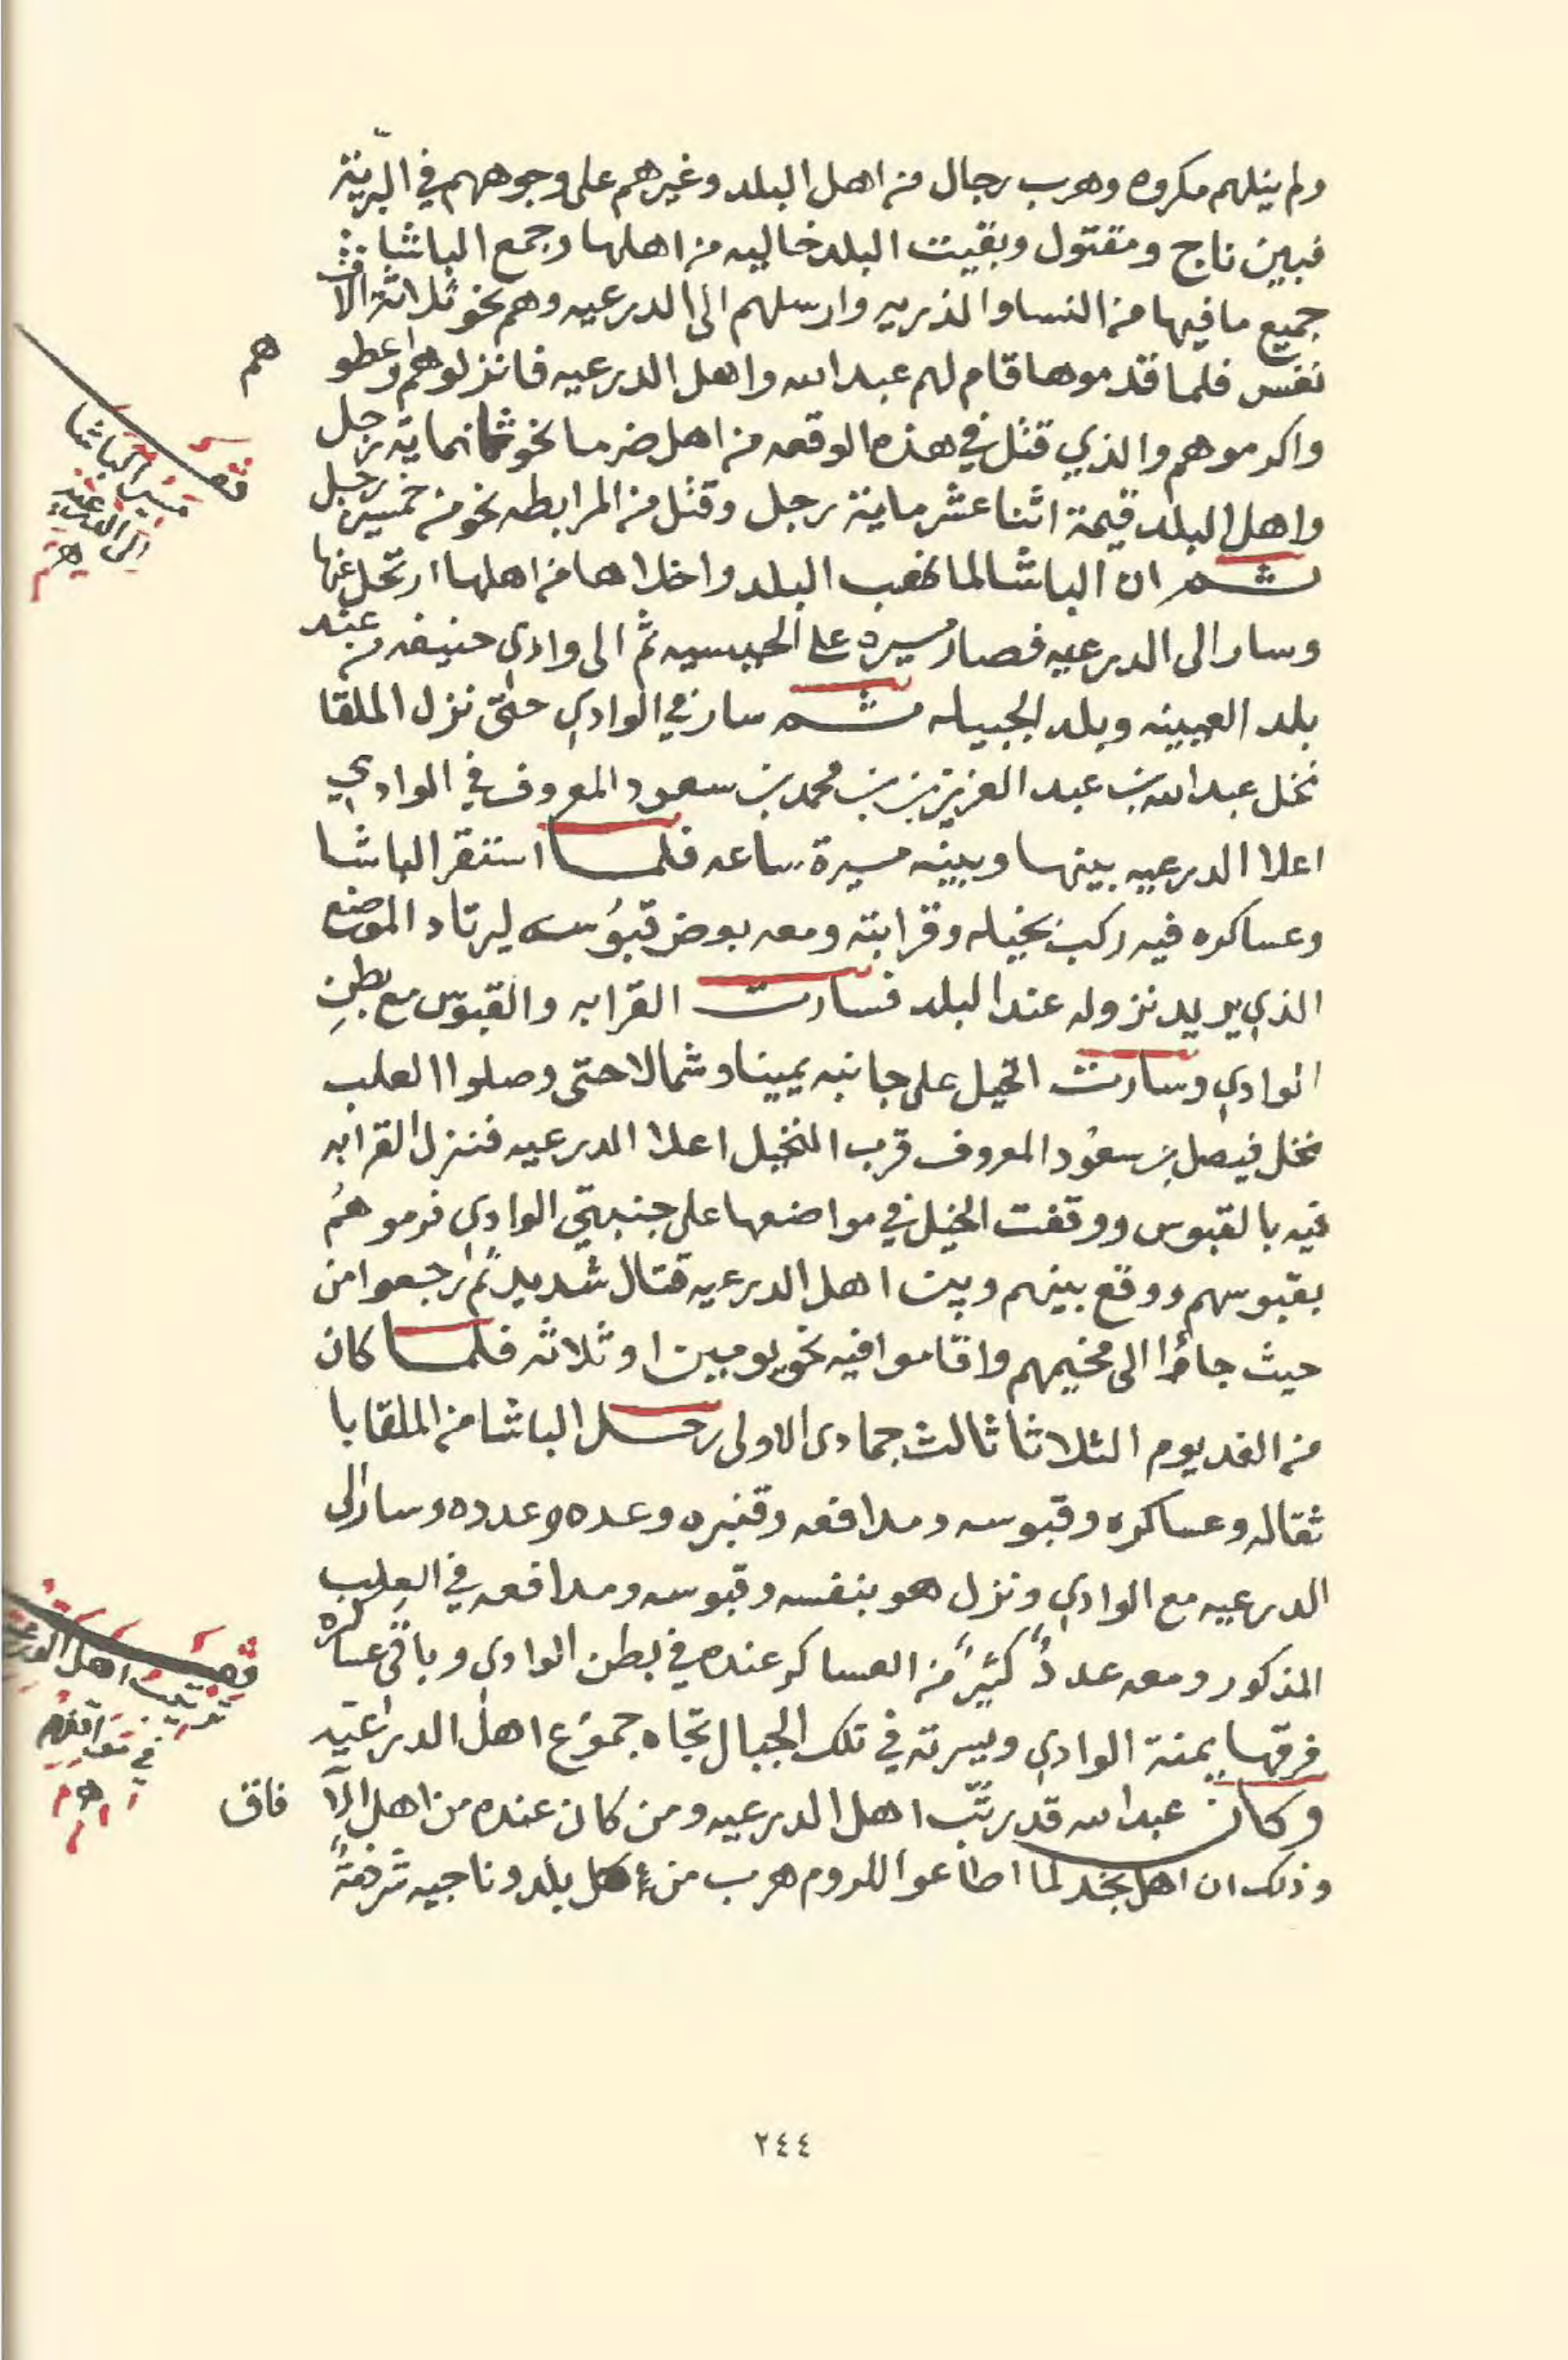 ولم ينلهم مكروه وهرب رجال من اهل البلد وغيرهم على وجوههم في البريّة
فبين ناج ومقتول وبقيت البلد خاليه من اهلها وجمع الباشا
جميع ما فيها من النسا والذريه وارسلهم الى الدرعيه وهم نحو ثلاثة الاف
نفس فلما قدموها قام لهم عبدالله واهل الدرعيه فانزلوهم واعطو
هم
واكرموهم والذي قتل في هذه الوقعه من اهل ضرما نحو ثمانماية رجل
واهل البلد قيمة اثنا عشر ماية رجل وقتل من المرابطه نحو من خمسين رجل
ثم ان الباشا لما نهب البلد واخلاها من اهلها ارتحل عنها
وسار الى الدرعيه فصار مسيره على الحيسيه ثم الى وادى حنيفه من عند
بلد العيينه وبلد الجبيله ثم سار في الوادي حتى نزل الملقا
نخل عبدالله بن عبد العزيز بن محمد بن سعود المعروف في الوادي
اعلا الدرعيه بينها وبينه مسيرة ساعه فلما استقر الباشا
وعساكره فيه ركب بخيله وقرابته ومعه بعض قبُوسه ليرتاد الموضع
الذي يريد نزوله عند البلد فسارت القرابه والقبوس مع بطنِ
الوادي وسارت الخيل على جانبه يمينا وشمالا حتى وصلوا العلب
نخل فيصل بن سعُود المعروف قرب النخيل اعلا الدرعيه فنزل القرابه
فيه بالقبوس ووقفت الخيل في مواضعها على جنبتي الوادي فرموهُم
بقبوسهم ووقع بينهم وبين اهل الدرعيه قتال شديد ثم رجعوا من
حيث جاؤا الى مخيمهم واقاموا فيه نحو يومين او ثلاثه فلما كان
من الغد يوم الثلاثا ثالث جمادى الاولى رحل الباشا من الملقا با
ثقاله وعساكره وقبوسه ومدافعه وقنبره وعده وعدده وسار الى
الدرعيه مع الوادي ونزل هو بنفسه وقبوسه ومدافعه في العِلب
المذكور ومعه عددٌ كثيرٌ من العساكر عنده في بطن الوادي وباقي عساكره
فرقها يمنة الوادي ويسرته في تلك الجبال تجاه جموُع اهل الدرعيّه
وكان عبدالله قد رتّب اهل الدرعيه ومن كان عنده من اهل الآ
فاق
وذلك ان اهل نجد لما اطاعوا للروم هرب من كل بلد وناحيه شرذمةً
قف
مسير الباشا
الى الدرعيه
قف
ترتيب اهل الدرعيه
في
٢٤٤